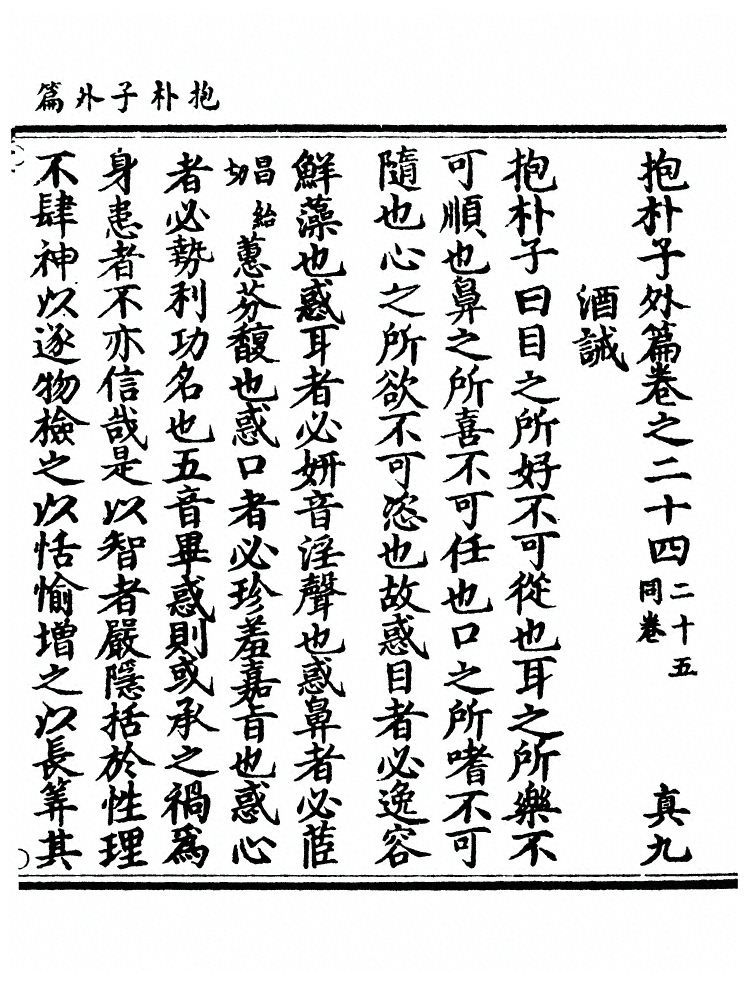 抱朴子外篇
抱朴子外篇卷之二十四 二十五同卷 真九
酒誡
抱朴子曰目之所好不可從也耳之所樂不
可順也鼻之所喜不可任也口之所嗜不可
隨也心之所欲不可恣也故惑目者必逸容
鮮藻也惑耳者必妍音淫聲也惑鼻者必茝
昌給切蕙芬馥也惑口者必珍羞嘉旨也惑心
者必勢利功名也五音畢惑則或承之禍爲
身患者不亦信哉是以智者嚴隱括於性理
不肆神以逐物檢之以恬愉增之以長筭其